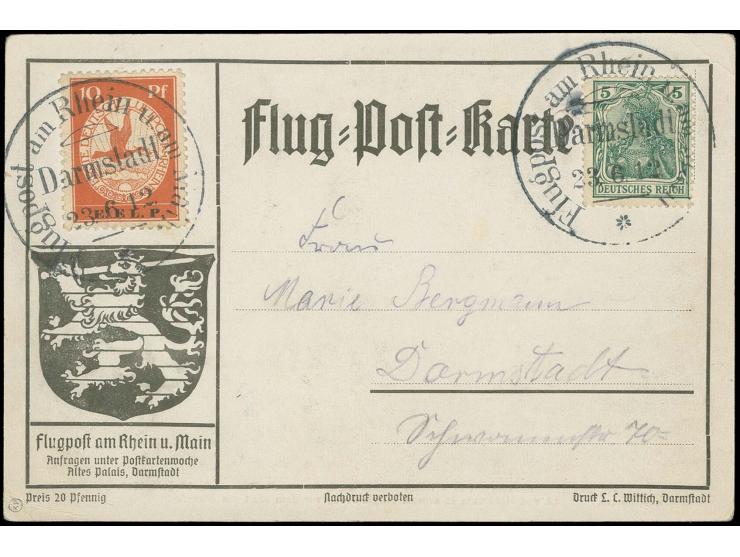 10 Pf
E.EL.P.
Flugpost am Rhein u. am
Darmstadt
23.6.12
Flug-Post-Karte
Flugpost am Rhein u.
Darmstadt
23.6.12
5 5
DEUTSCHES REICH
Frau
Marie Bergmann
Darmstadt
70
Flugpost am Rhein u. Main
Anfragen unter Postkartenwoche
Altes Palais, Darmstadt
Preis 20 Pfennig
Nachdruck verboten
Druck L. C. Wittich, Darmstadt